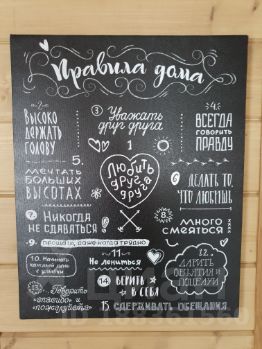 Правила дома
-2-
ВЫСОКО
ДЕРЖАТЬ
ГОЛОВУ
3
Уважать
друг друга
4.
ВСЕГДА
ГОВОРИТЬ
ПРАВДУ
5.
МЕЧТАТЬ
БОЛЬШИХ
ВЫСОТАХ
1
Любить
друг
друга
6
ДЕЛАТЬ ТО,
ЧТО ЛЮБИШЬ
7.
НИКОГДА
НЕ СДАВАТЬСЯ!
8.
МНОГО
СМЕЯТЬСЯ
9.
ПРОЩАТЬ, ДАЖЕ КОГДА ТРУДНО
10. Начинать
каждый день с
улыбки
-11-
Не лениться
12.
ДАРИТЬ
ОБЪЯТИЯ И
ПОЦЕЛУИ
Говорить
«спасибо» и
«пожалуйста»
14
ВЕРИТЬ
В СЕБЯ
15. СДЕРЖИВАТЬ ОБЕЩАНИЯ.